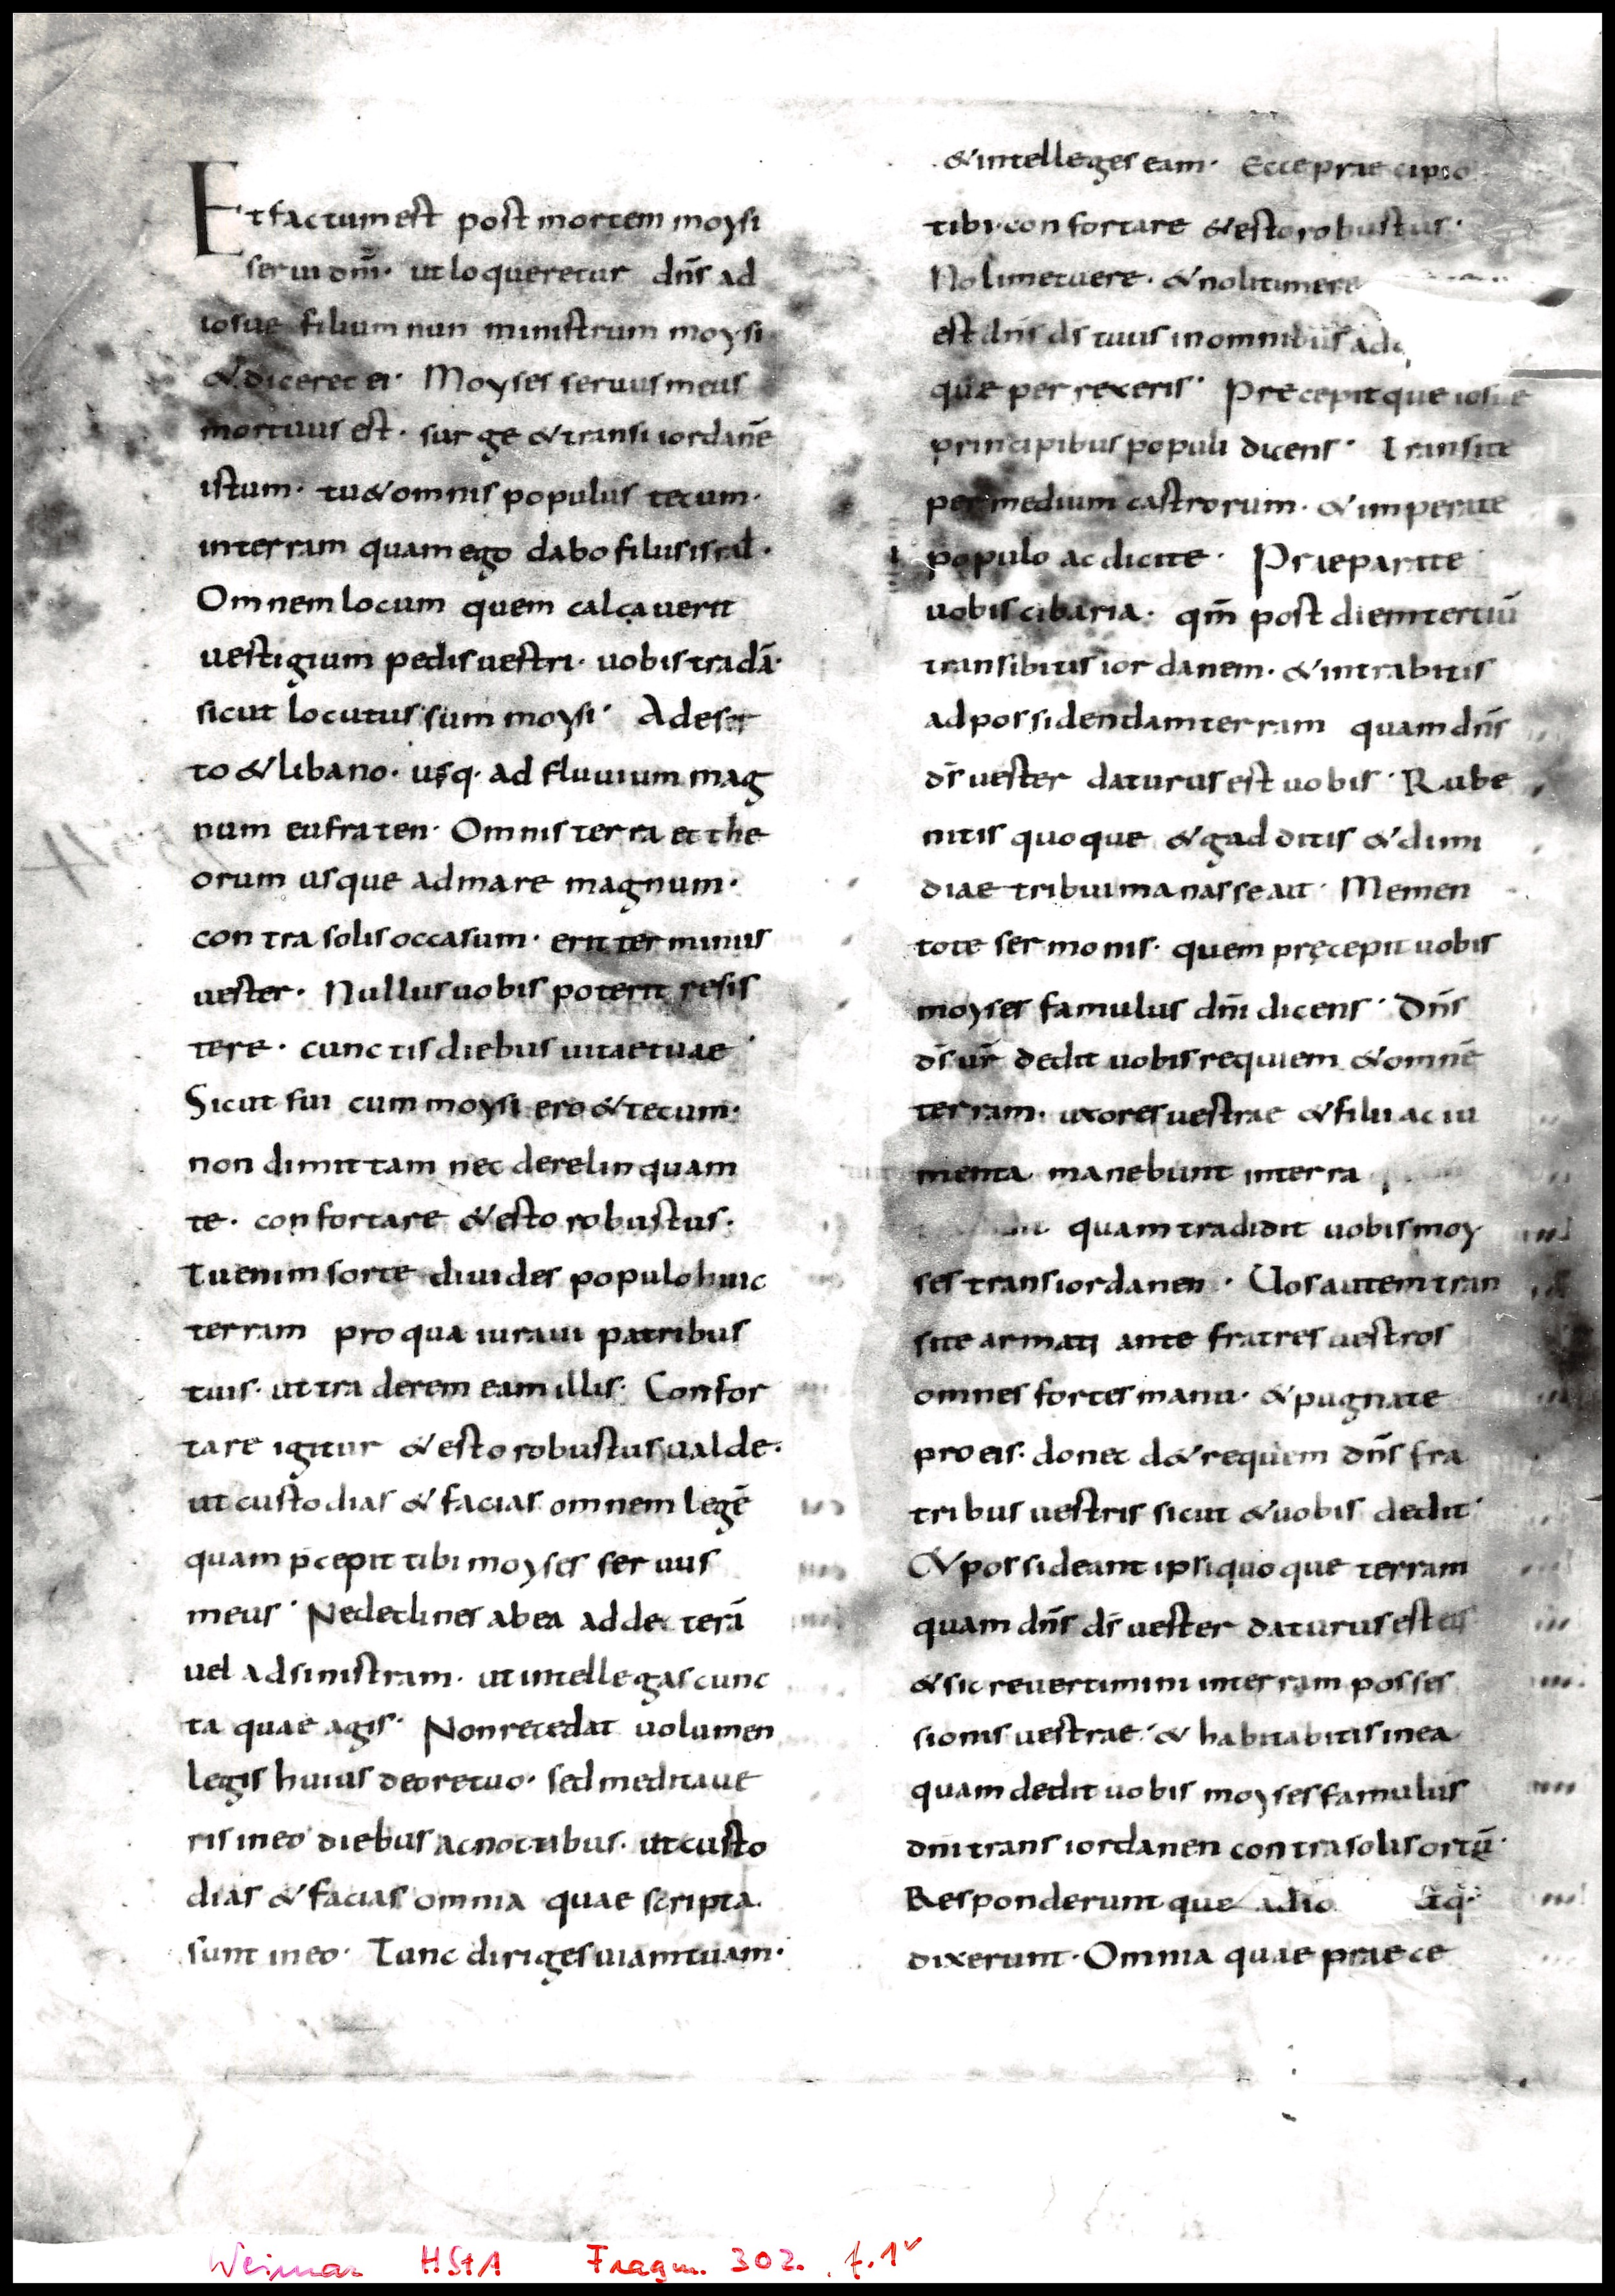 Et factum est post mortem moysi
serui dñi· ut loqueretur dñs ad
iosue filium nun ministrum moysi
& diceret ei· Moyses seruus meus
mortuus est· surge & transi iordanē
istum· tu & omnis populus tecum·
in terram quam ego dabo filiis isrl̄·
Omnem locum quem calcauerit
uestigium pedis uestri· uobis tradā·
sicut locutus sum moysi· A deser
to & libano· usq· ad fluuium mag
num eufraten· Omnis terra et the
orum usque ad mare magnum·
contra solis occasum· erit terminus
uester· Nullus uobis poterit resis
tere· cunctis diebus uitae tuae·
Sicut fui cum moysi ero & tecum·
non dimittam nec derelinquam
te· confortare & esto robustus·
Tu enim sorte diuides populo huic
terram pro qua iuraui patribus
tuis· ut traderem eam illis· Confor
tare igitur & esto robustus ualde·
ut custodias & facias omnem legē
quam p̄cepit tibi moyses seruus
meus· Ne declines ab ea ad dexterā
uel ad sinistram· ut intellegas cunc
ta quae agis· Non recedat uolumen
legis huius de ore tuo· sed meditaue
ris in eo diebus ac noctibus· ut custo
dias & facias omnia quae scripta
sunt in eo· Tunc diriges uiam tuam·
& intelleges eam· Ecce praecipio
tibi· confortare & esto robustus·
Noli metuere· & noli timere
est dñs ds̄ tuus in omnibus ad
que perrexeris· Precepitque iosue
principibus populi dicens· Transite
per medium castrorum· & imperate
populo ac dicite· Praeparate
uobis cibaria· qm̄ post diem tertiū
transibitis iordanem· & intrabitis
ad possidendam terram quam dñs
ds̄ uester daturus est uobis· Rube
nitis quoque & gadditis & dimi
diae tribui manasse ait· Memen
tote sermonis· quem pręcepit uobis
moyses famulus dñi dicens· Dñs
ds̄ ur̄ dedit uobis requiem & omnē
terram· uxores uestrae & filii ac iu
menta manebunt in terra
quam tradidit uobis moy
ses trans iordanen· Uos autem tran
site armati ante fratres uestros
omnes fortes manu· & pugnate
pro eis· donec d& requiem dñs fra
tribus uestris sicut & uobis dedit·
& possideant ipsi quoque terram
quam dñs ds̄ uester daturus est eis
& sic reuertimini in terram posses
sionis uestrae· & habitabitis in ea
quam dedit uobis moyses famulus
dñi trans iordanen contra solis ortū·
Responderuntque ad io atq·
dixerunt· Omnia quae praece
Weimar HStA Fragm. 302. f. 1v